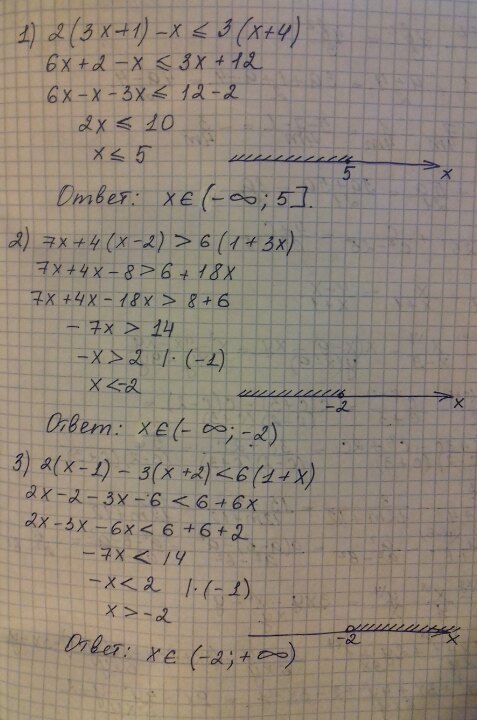 1) 2(3x+1)-x ≤ 3(x+4)
6x+2-x ≤ 3x+12
6x-x-3x ≤ 12-2
2x ≤ 10
x ≤ 5
5 x
Ответ: x ∈ (-∞; 5].
2) 7x+4(x-2) > 6(1+3x)
7x+4x-8 > 6+18x
7x+4x-18x > 8+6
-7x > 14
-x > 2 |·(-1)
x < -2
-2 x
Ответ: x ∈ (-∞; -2)
3) 2(x-1)-3(x+2) < 6(1+x)
2x-2-3x-6 < 6+6x
2x-3x-6x < 6+6+2
-7x < 14
-x < 2 |·(-1)
x > -2
-2 x
Ответ: x ∈ (-2; +∞)